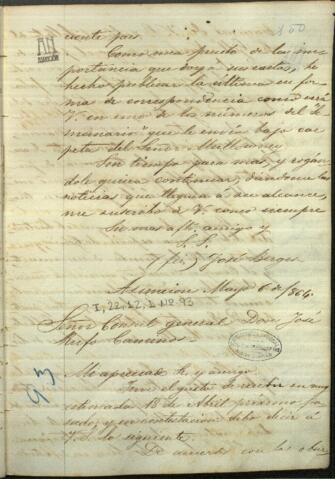 150
AN
ASUNCIÓN
ciente pais.
Como una prueba de la im-
portancia que doy a sus cartas, he
hecho publicar la última en for-
ma de correspondencia como verá
V. en uno de los números del "Se-
manario" que le envio bajo car-
peta del Señor
Sin tiempo para mas, y rogan-
dole quiera continuar, dandome las
noticias que lleguen á su alcance,
me suscribo á V. como siempre
Su mas afto. amigo y
S. S.
(fir) José Berges
Asuncion Mayo 6 de 1864.
I, 22, 12, 1 Nº 93
Señor Consul general Don José
Rufo Caminos.
93
Mi apreciado Sr. y amigo.
Tuve el gusto de recibir su muy
estimada 18 de Abril proximo pa-
sado, y en contestacion debo decir á
V. lo siguiente.
De acuerdo con las